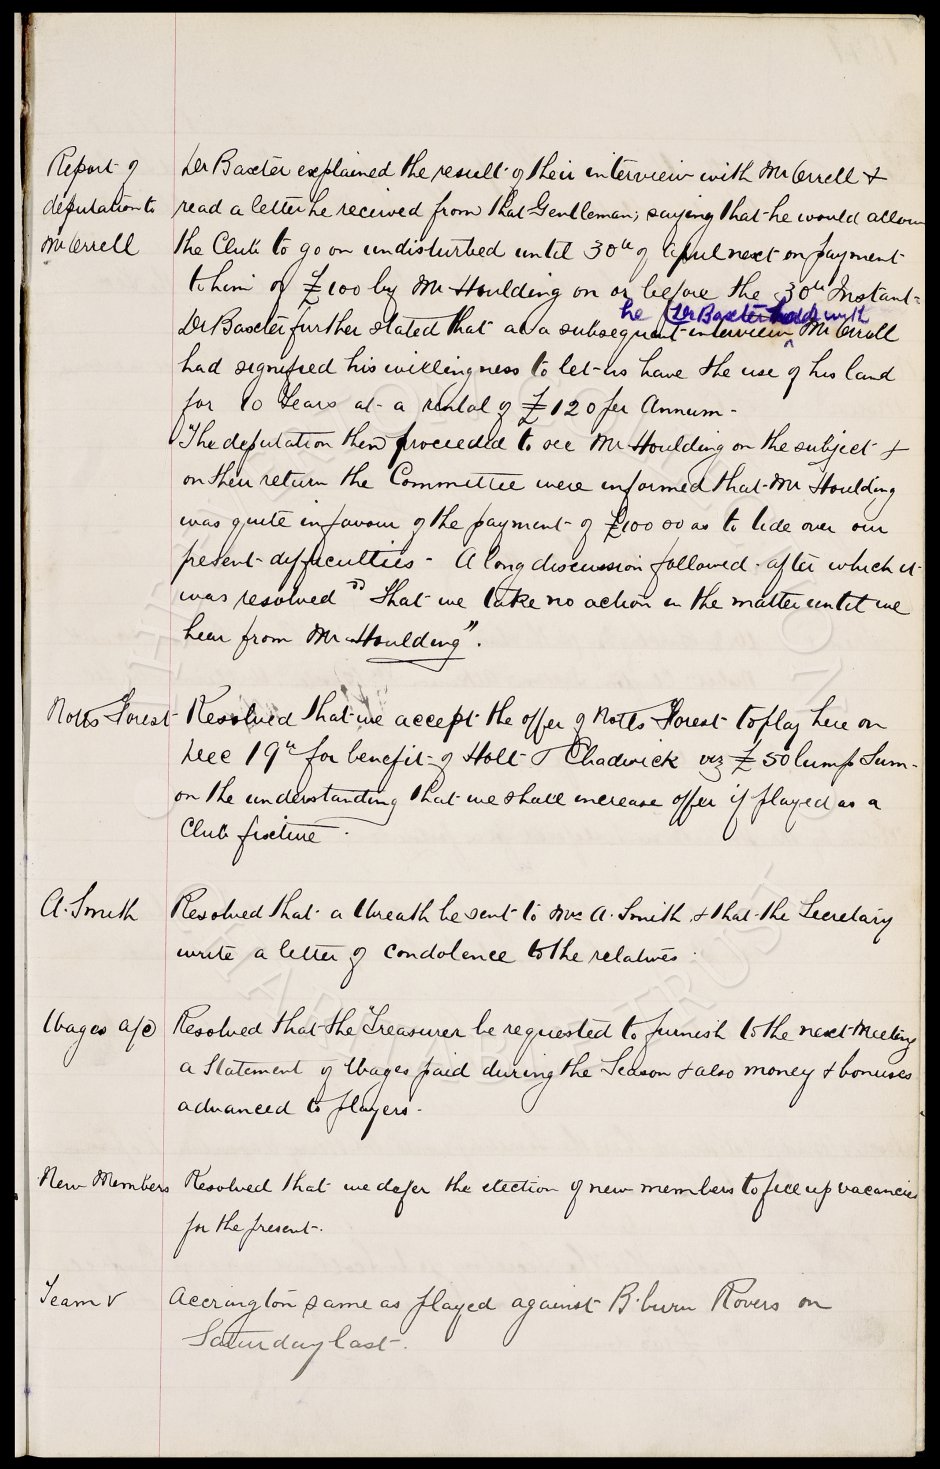 Report of
deputation to
Mr Orrell
Dr Baxter explained the result of their interview with Mr Orrell &
read a letter he received from that Gentleman; saying that he would allow
the Club to go on undisturbed until 30th of April next on payment
to him of £100 by Mr Houlding on or before the 30th Instant -
he (Dr Baxter had) with
Dr Baxter further stated that at a subsequent interview ^ Mr Orrell
had signified his willingness to let us have the use of his land
for 10 Years at a rental of £120 per Annum -
The deputation then proceeded to see Mr Houlding on the subject &
on their return the Committee were informed that Mr Houlding
was quite in favour of the payment of £100 so as to tide over our
present difficulties - A long discussion followed - after which it
was resolved "That we take no action in the matter until we
hear from Mr Houlding".
Notts Forest
Resolved that we accept the offer of Notts Forest to play here on
Dec 19th for benefit of Holt & Chadwick viz £50 lump Sum -
on the understanding that we shall increase offer if played as a
Club fixture -
A. Smith
Resolved that a Wreath be sent to Mrs A. Smith & that the Secretary
write a letter of condolence to the relatives.
Wages a/c
Resolved that the Treasurer be requested to furnish to the next Meeting
a Statement of Wages paid during the Season & also money & bonuses
advanced to players -
New Members
Resolved that we defer the election of new members to fill up vacancies
for the present -
Team v
Accrington same as played against B'burn Rovers on
Saturday last.
EVERTON
COLLECTION
CHARITABLE
TRUST